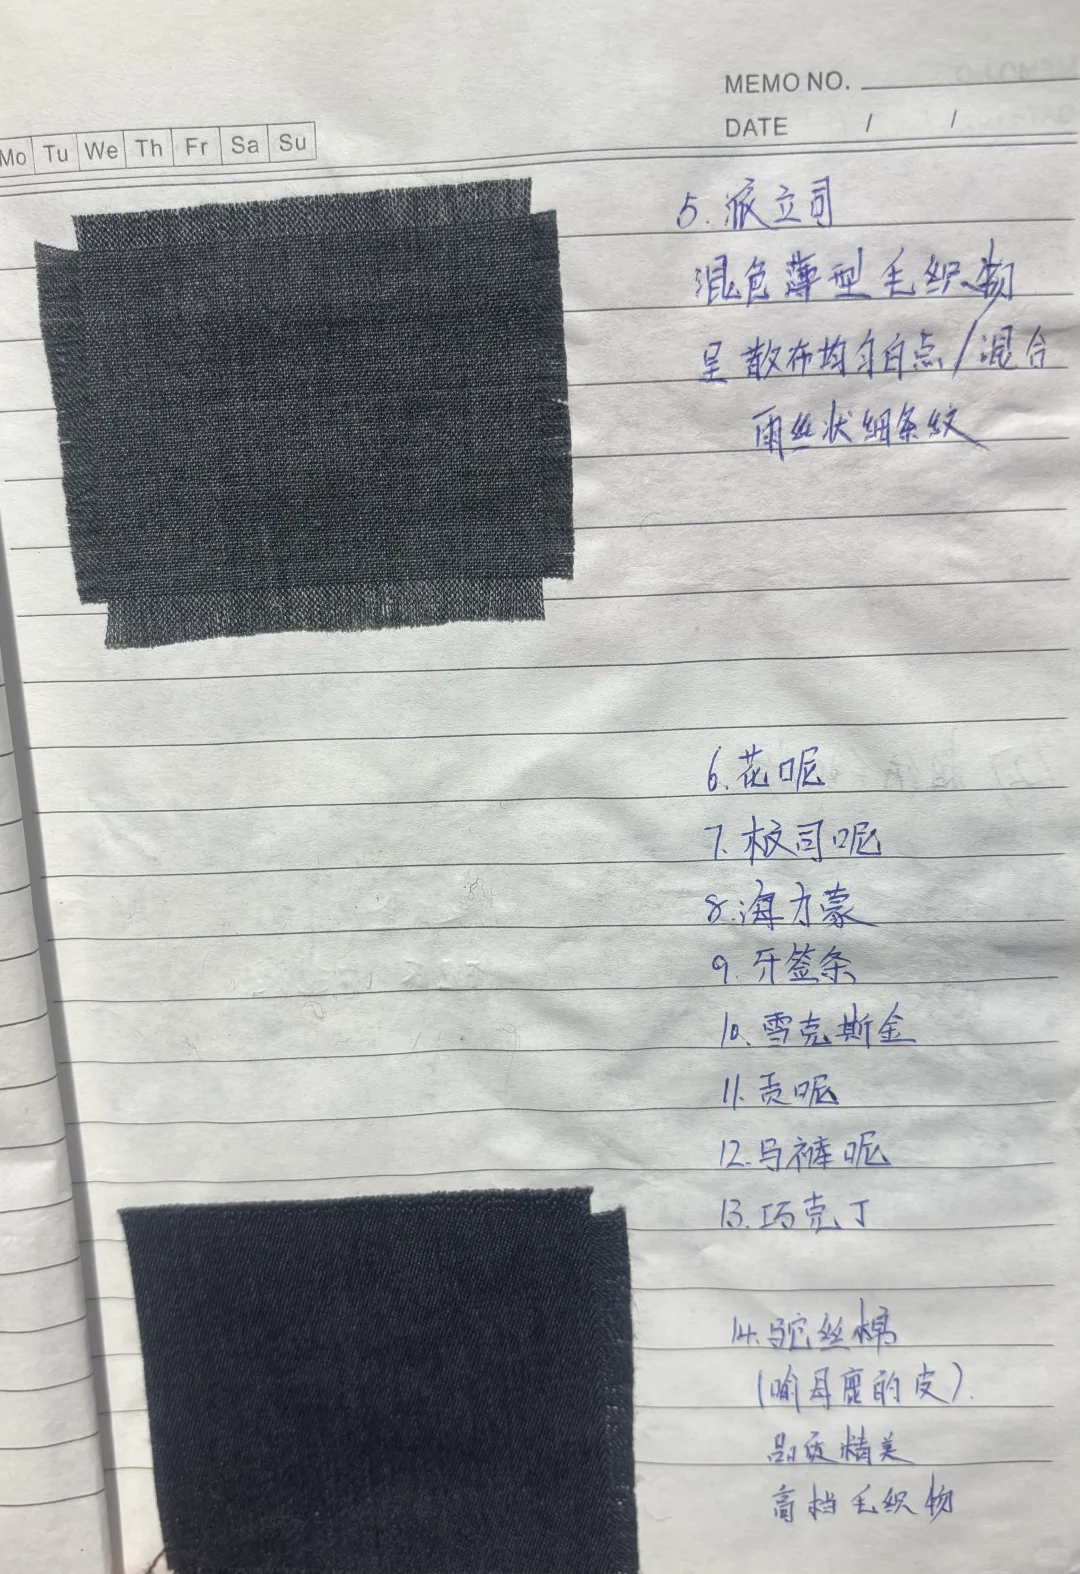 MEMO NO.
DATE / /
Mo Tu We Th Fr Sa Su
5. 派立司
混色薄型毛织物
呈散布均匀白点/混合
雨丝状细条纹
6. 花呢
7. 板司呢
8. 海力蒙
9. 牙签条
10. 雪克斯金
11. 贡呢
12. 马裤呢
13. 巧克丁
14. 驼丝棉
(喻母鹿的皮).
品质精美
高档毛织物